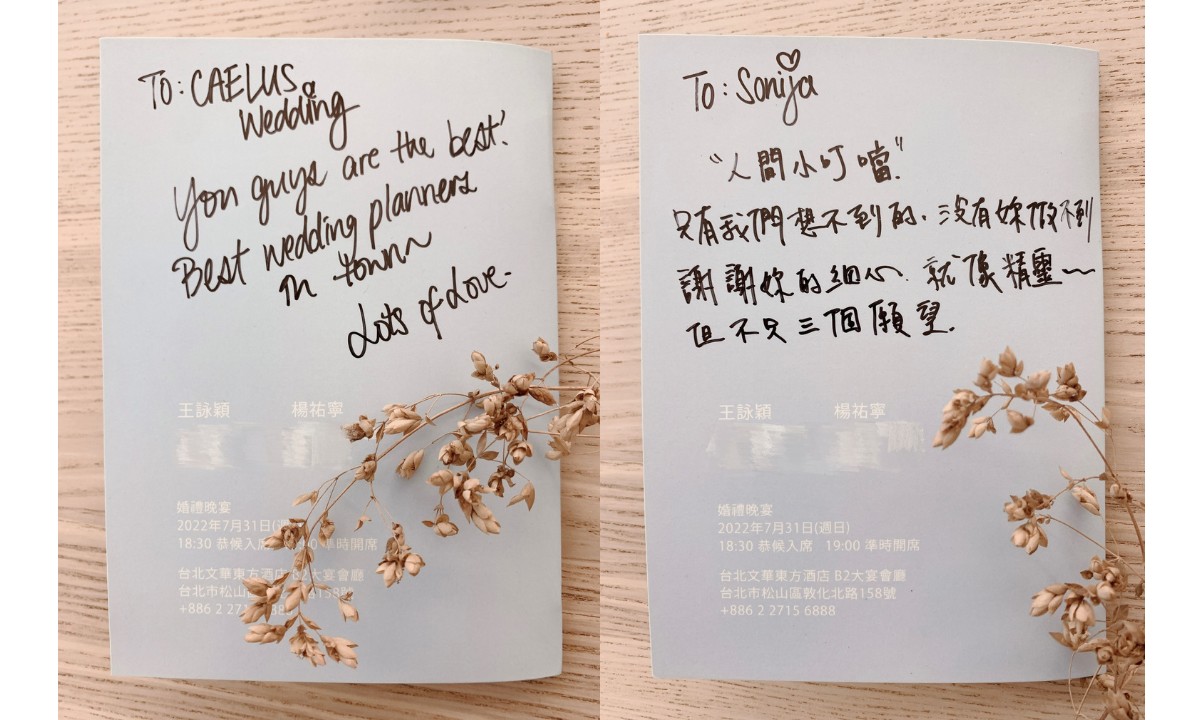 To: CAELUS
Wedding
You guys are the best!
Best wedding planners
in town~
Lots of Love.
王詠穎 楊祐寧
婚禮晚宴
2022年7月31日(週
18:30 恭候入席 準時開席
台北文華東方酒店 B2大宴會廳
台北市松山區 158號
+886 2 2715 6888
To: Sonija
“人間小叮噹”
只有我們想不到的、沒有妳做不到
謝謝妳的細心、就像精靈~
但不只三個願望.
王詠穎 楊祐寧
婚禮晚宴
2022年7月31日(週日)
18:30 恭候入席 19:00 準時開席
台北文華東方酒店 B2大宴會廳
台北市松山區敦化北路158號
+886 2 2715 6888